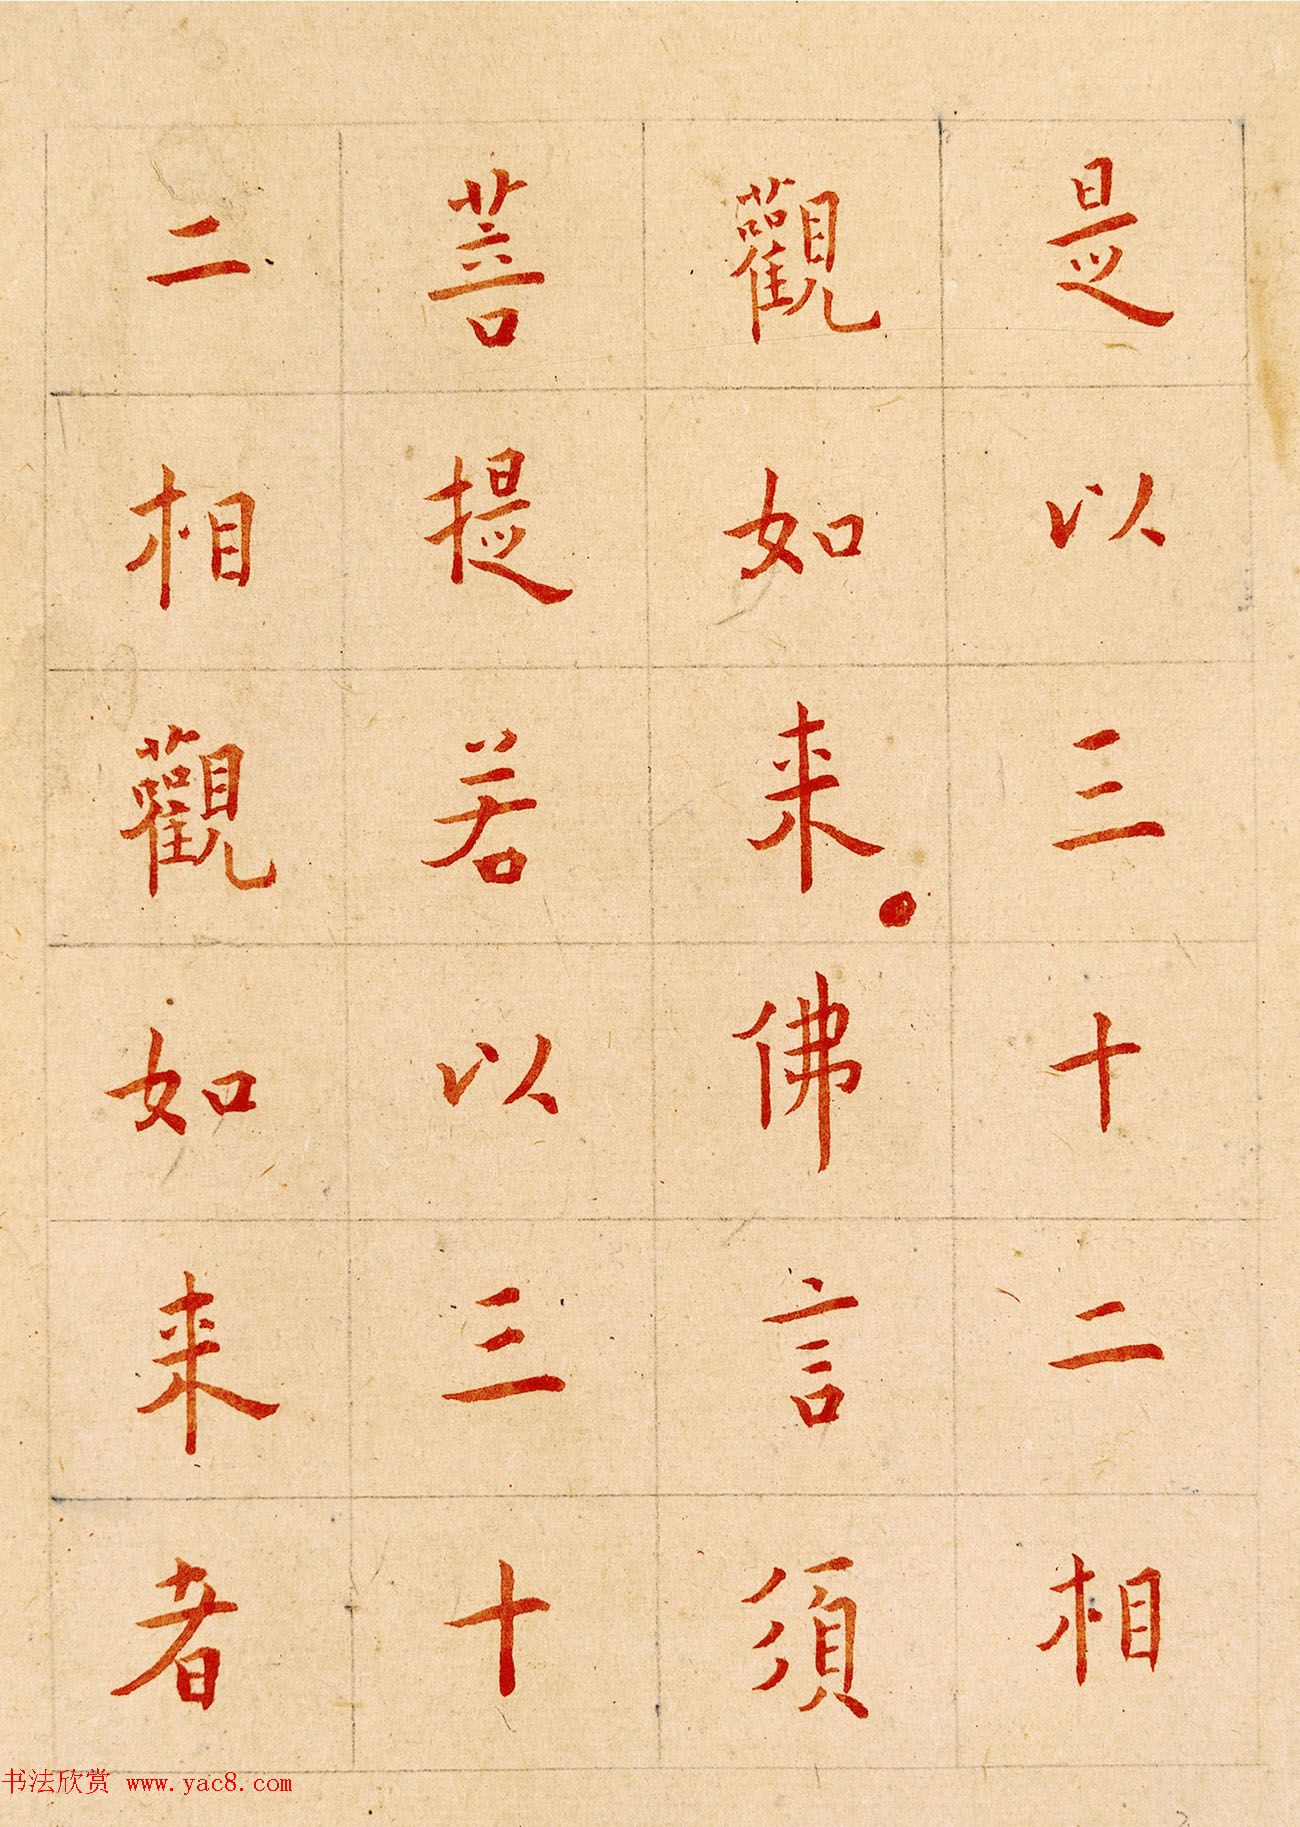 是以三十二相
觀如来。佛言須
菩提若以三十
二相觀如来者
书法欣赏 www.yac8.com